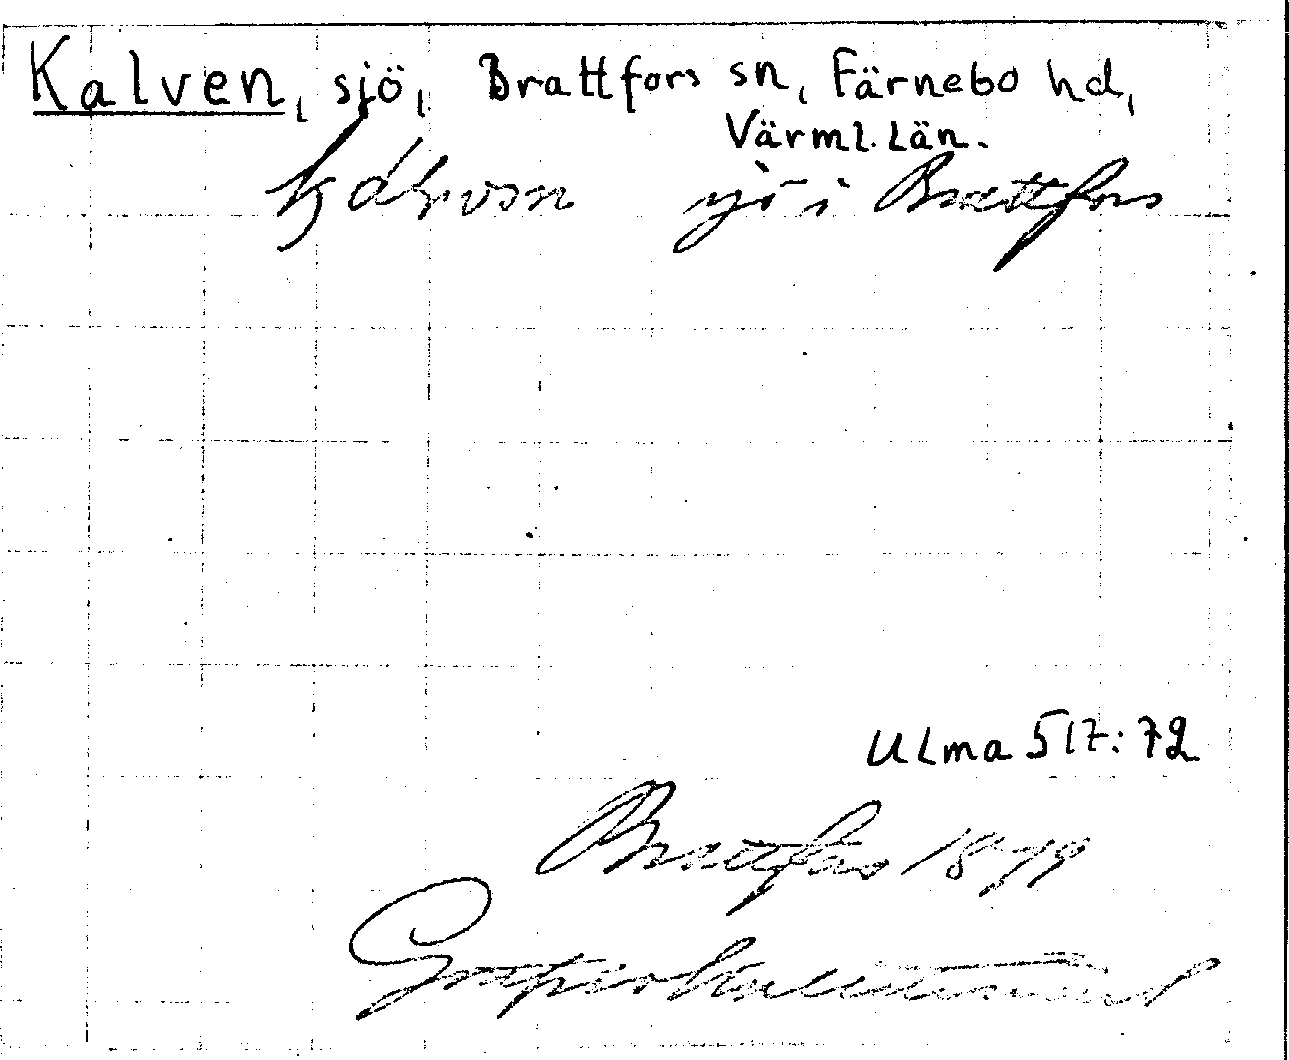 Kalven, sjö, Brattfors sn, Färnebo hd,
Värml. län.
sjö i Brattfors
ULma 517:72
Brattfors 1879